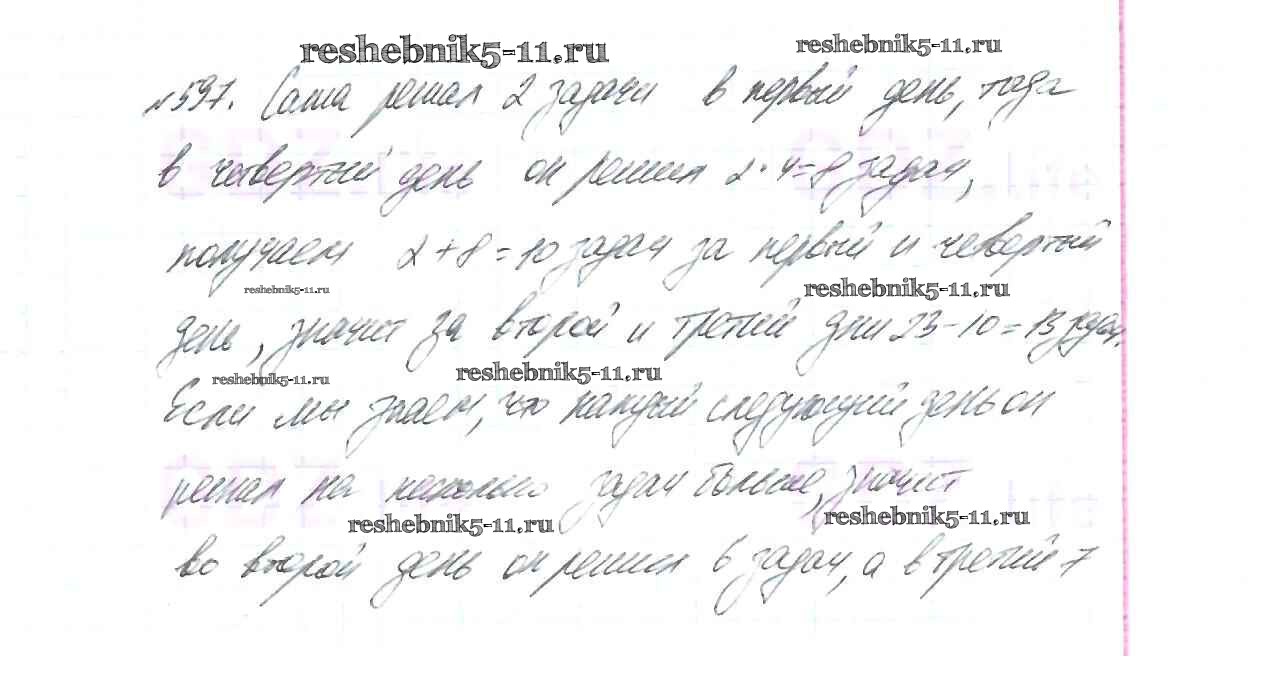 reshebnik5-11.ru
reshebnik5-11.ru
№597. Саша решал 2 задачи в первый день, тогда
в четвертый день он решил 2·4=8 задач,
получаем 2+8=10 задач за первый и четвертый
reshebnik5-11.ru
reshebnik5-11.ru
день, значит за второй и третий дни 23-10=13 задач.
reshebnik5-11.ru
reshebnik5-11.ru
Если мы знаем, что каждый следующий день он
решал на несколько задач больше, значит
reshebnik5-11.ru
reshebnik5-11.ru
во второй день он решил 6 задач, а в третий 7